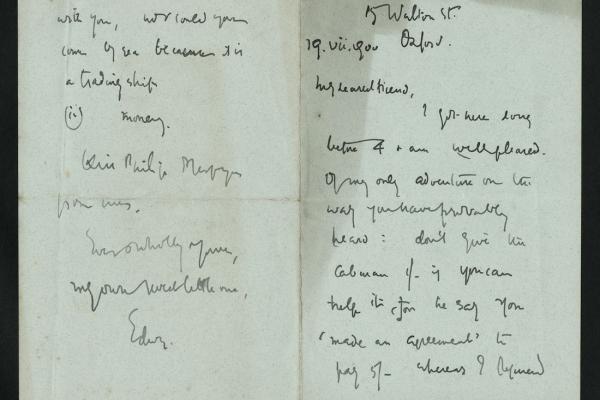 with you, nor could you
come by sea because it is
a trading ship
(ii) money.
Kiss Philip Merfyn
from me.
Ever & wholly yours,
my own sweet little one,
Edwy.
17 Walton St.
19.vii.900 Oxford.
My dearest friend,
I got here long
before 4 & am well pleased.
Of my only adventure on the
way you have probably
heard: don't give the
Cabman 1/- if you can
help it, for he says you
'made an agreement' to
pay 5/- whereas I